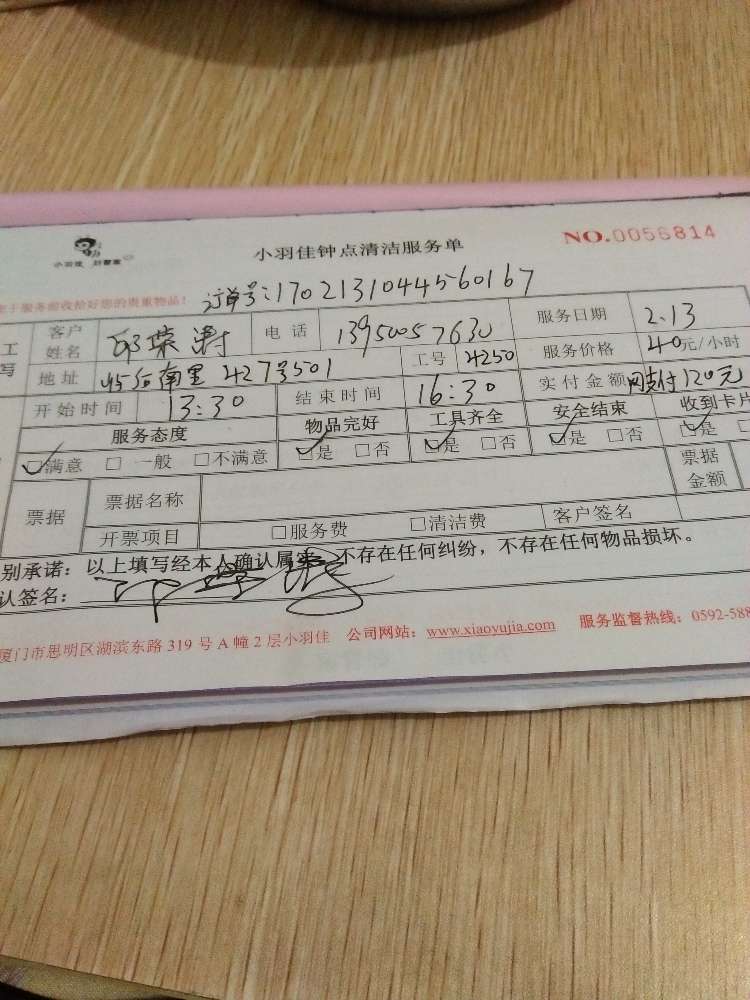 小羽佳 好管家
小羽佳钟点清洁服务单 NO.0056814
于服务前收拾好您的贵重物品! 订单号:17021310444560167
工 客户姓名 邱荣 电话 13950057630 服务日期 2.13
写 地址 南里 427号501 工号 4250 服务价格 40元/小时
开始时间 13:30 结束时间 16:30 实付金额 网支付120元
服务态度 物品完好 工具齐全 安全结束 收到卡片
☑满意 □ 一般 □不满意 ☑是 □否 ☑是 □否 ☑是 □否 ☑是 □
票据 票据名称 票据金额
开票项目 □服务费 □清洁费 客户签名
别承诺：以上填写经本人确认属实，不存在任何纠纷，不存在任何物品损坏。
认签名：
厦门市思明区湖滨东路 319 号 A 幢 2 层小羽佳 公司网站：www.xiaoyujia.com 服务监督热线：0592-588